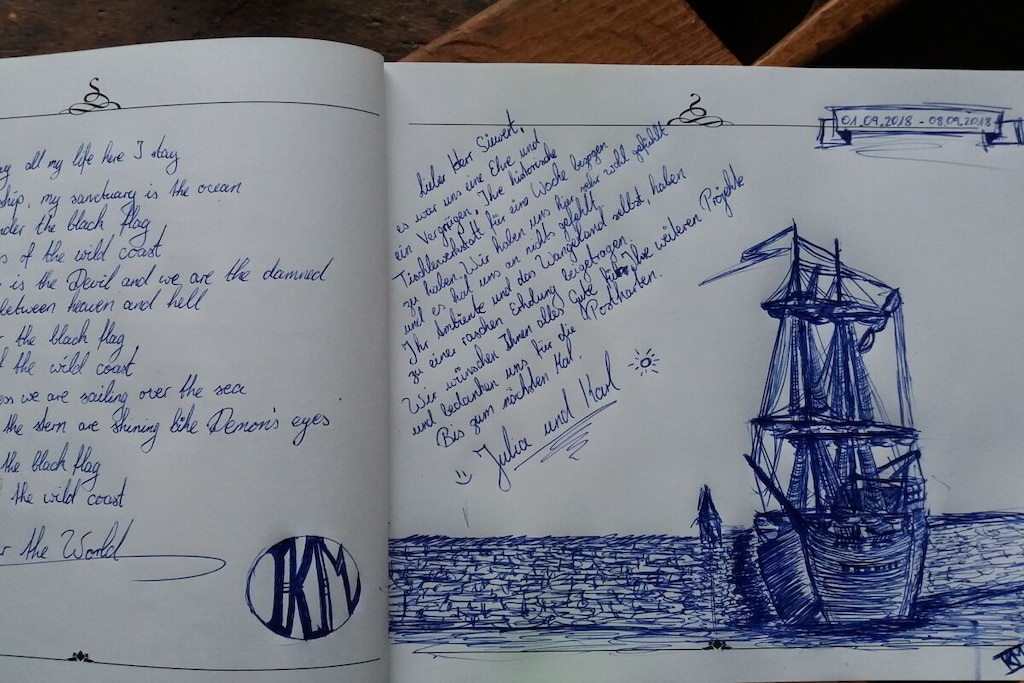 all my life here I stay
ship, my sanctuary is the ocean
under the black flag
of the wild coast
is the Devil and we are the damned
between heaven and hell
the black flag
the wild coast
we are sailing over the sea
the stern are shining like Demon's eyes
the black flag
the wild coast
the World
IKM
01.09.2018 - 08.09.2018
Lieber Herr Siewert,
es war uns eine Ehre und
ein Vergnügen, Ihre historische
Tischlerwerkstatt für eine Woche bezogen
zu haben. Wir haben uns hier sehr wohl gefühlt
und es hat uns an nichts gefehlt.
Ihr Ambiente und das Wangerland selbst, haben
zu einer raschen Erholung beigetragen.
Wir wünschen Ihnen alles Gute für Ihre weiteren Projekte
und bedanken uns für die Postkarten.
Bis zum nächsten Mal.
Julia und Karl